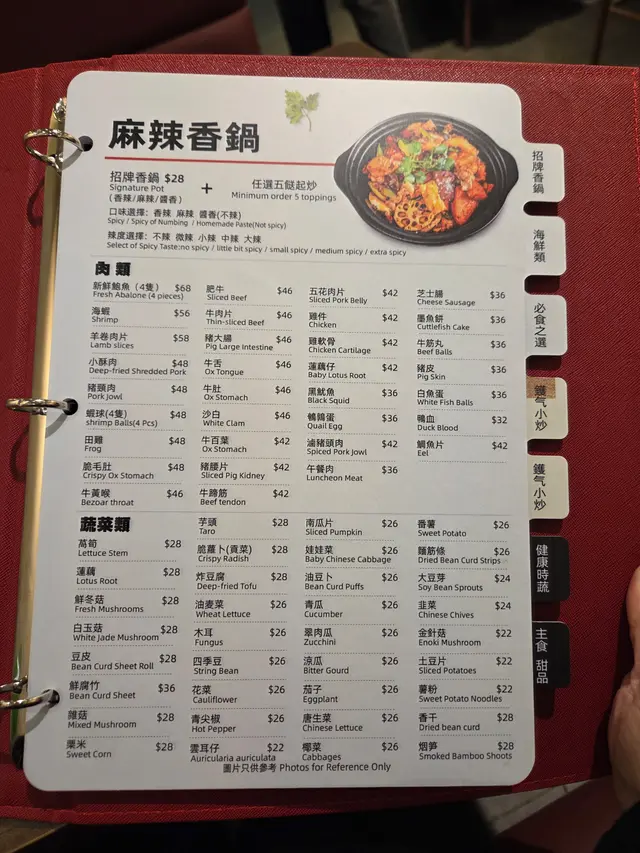 麻辣香鍋
招牌香鍋 $28
Signature Pot
(香辣/麻辣/醬香)
+
任選五餸起炒
Minimum order 5 toppings
口味選擇: 香辣 麻辣 醬香(不辣)
Spicy / Spicy of Numbing / Homemade Paste(Not spicy)
辣度選擇: 不辣 微辣 小辣 中辣 大辣
Select of Spicy Taste:no spicy / little bit spicy / small spicy / medium spicy / extra spicy
肉類
新鮮鮑魚 (4隻) $68
Fresh Abalone (4 pieces)
海蝦 $56
Shrimp
羊卷肉片 $58
Lamb slices
小酥肉 $48
Deep-fried Shredded Pork
豬頸肉 $48
Pork Jowl
蝦球(4隻) $48
shrimp Balls(4 Pcs)
田雞 $48
Frog
脆毛肚 $48
Crispy Ox Stomach
牛黃喉 $46
Bezoar throat
肥牛 $46
Sliced Beef
牛肉片 $46
Thin-sliced Beef
豬大腸 $46
Pig Large Intestine
牛舌 $46
Ox Tongue
牛肚 $46
Ox Stomach
沙白 $46
White Clam
牛百葉 $42
Ox Stomach
豬腰片 $42
Sliced Pig Kidney
牛蹄筋 $42
Beef tendon
五花肉片 $42
Sliced Pork Belly
雞件 $42
Chicken
雞軟骨 $42
Chicken Cartilage
蓮藕仔 $42
Baby Lotus Root
黑魷魚 $36
Black Squid
鵪鶉蛋 $36
Quail Egg
滷豬頭肉 $42
Spiced Pork Jowl
午餐肉 $36
Luncheon Meat
芝士腸 $36
Cheese Sausage
墨魚餅 $36
Cuttlefish Cake
牛筋丸 $36
Beef Balls
豬皮 $36
Pig Skin
白魚蛋 $36
White Fish Balls
鴨血 $32
Duck Blood
鱔魚片 $42
Eel
蔬菜類
萵筍 $28
Lettuce Stem
蓮藕 $28
Lotus Root
鮮冬菇 $28
Fresh Mushrooms
白玉菇 $28
White Jade Mushroom
豆皮 $28
Bean Curd Sheet Roll
鮮腐竹 $36
Bean Curd Sheet
雜菇 $28
Mixed Mushroom
粟米 $28
Sweet Corn
芋頭 $28
Taro
脆蘿卜(貢菜) $28
Crispy Radish
炸豆腐 $28
Deep-fried Tofu
油麥菜 $26
Wheat Lettuce
木耳 $26
Fungus
四季豆 $26
String Bean
花菜 $26
Cauliflower
青尖椒 $26
Hot Pepper
雲耳仔 $22
Auricularia auriculata
南瓜片 $26
Sliced Pumpkin
娃娃菜 $26
Baby Chinese Cabbage
油豆卜 $26
Bean Curd Puffs
青瓜 $26
Cucumber
翠肉瓜 $26
Zucchini
涼瓜 $26
Bitter Gourd
茄子 $26
Eggplant
唐生菜 $26
Chinese Lettuce
椰菜 $26
Cabbages
番薯 $26
Sweet Potato
麵筋條 $26
Dried Bean Curd Strips
大豆芽 $24
Soy Bean Sprouts
韭菜 $24
Chinese Chives
金針菇 $22
Enoki Mushroom
土豆片 $22
Sliced Potatoes
薯粉 $22
Sweet Potato Noodles
香干 $28
Dried bean curd
烟筍 $28
Smoked Bamboo Shoots
圖片只供參考 Photos for Reference Only
招牌香鍋
海鮮類
必食之選
鑊气小炒
鑊气小炒
健康時蔬
主食 甜品